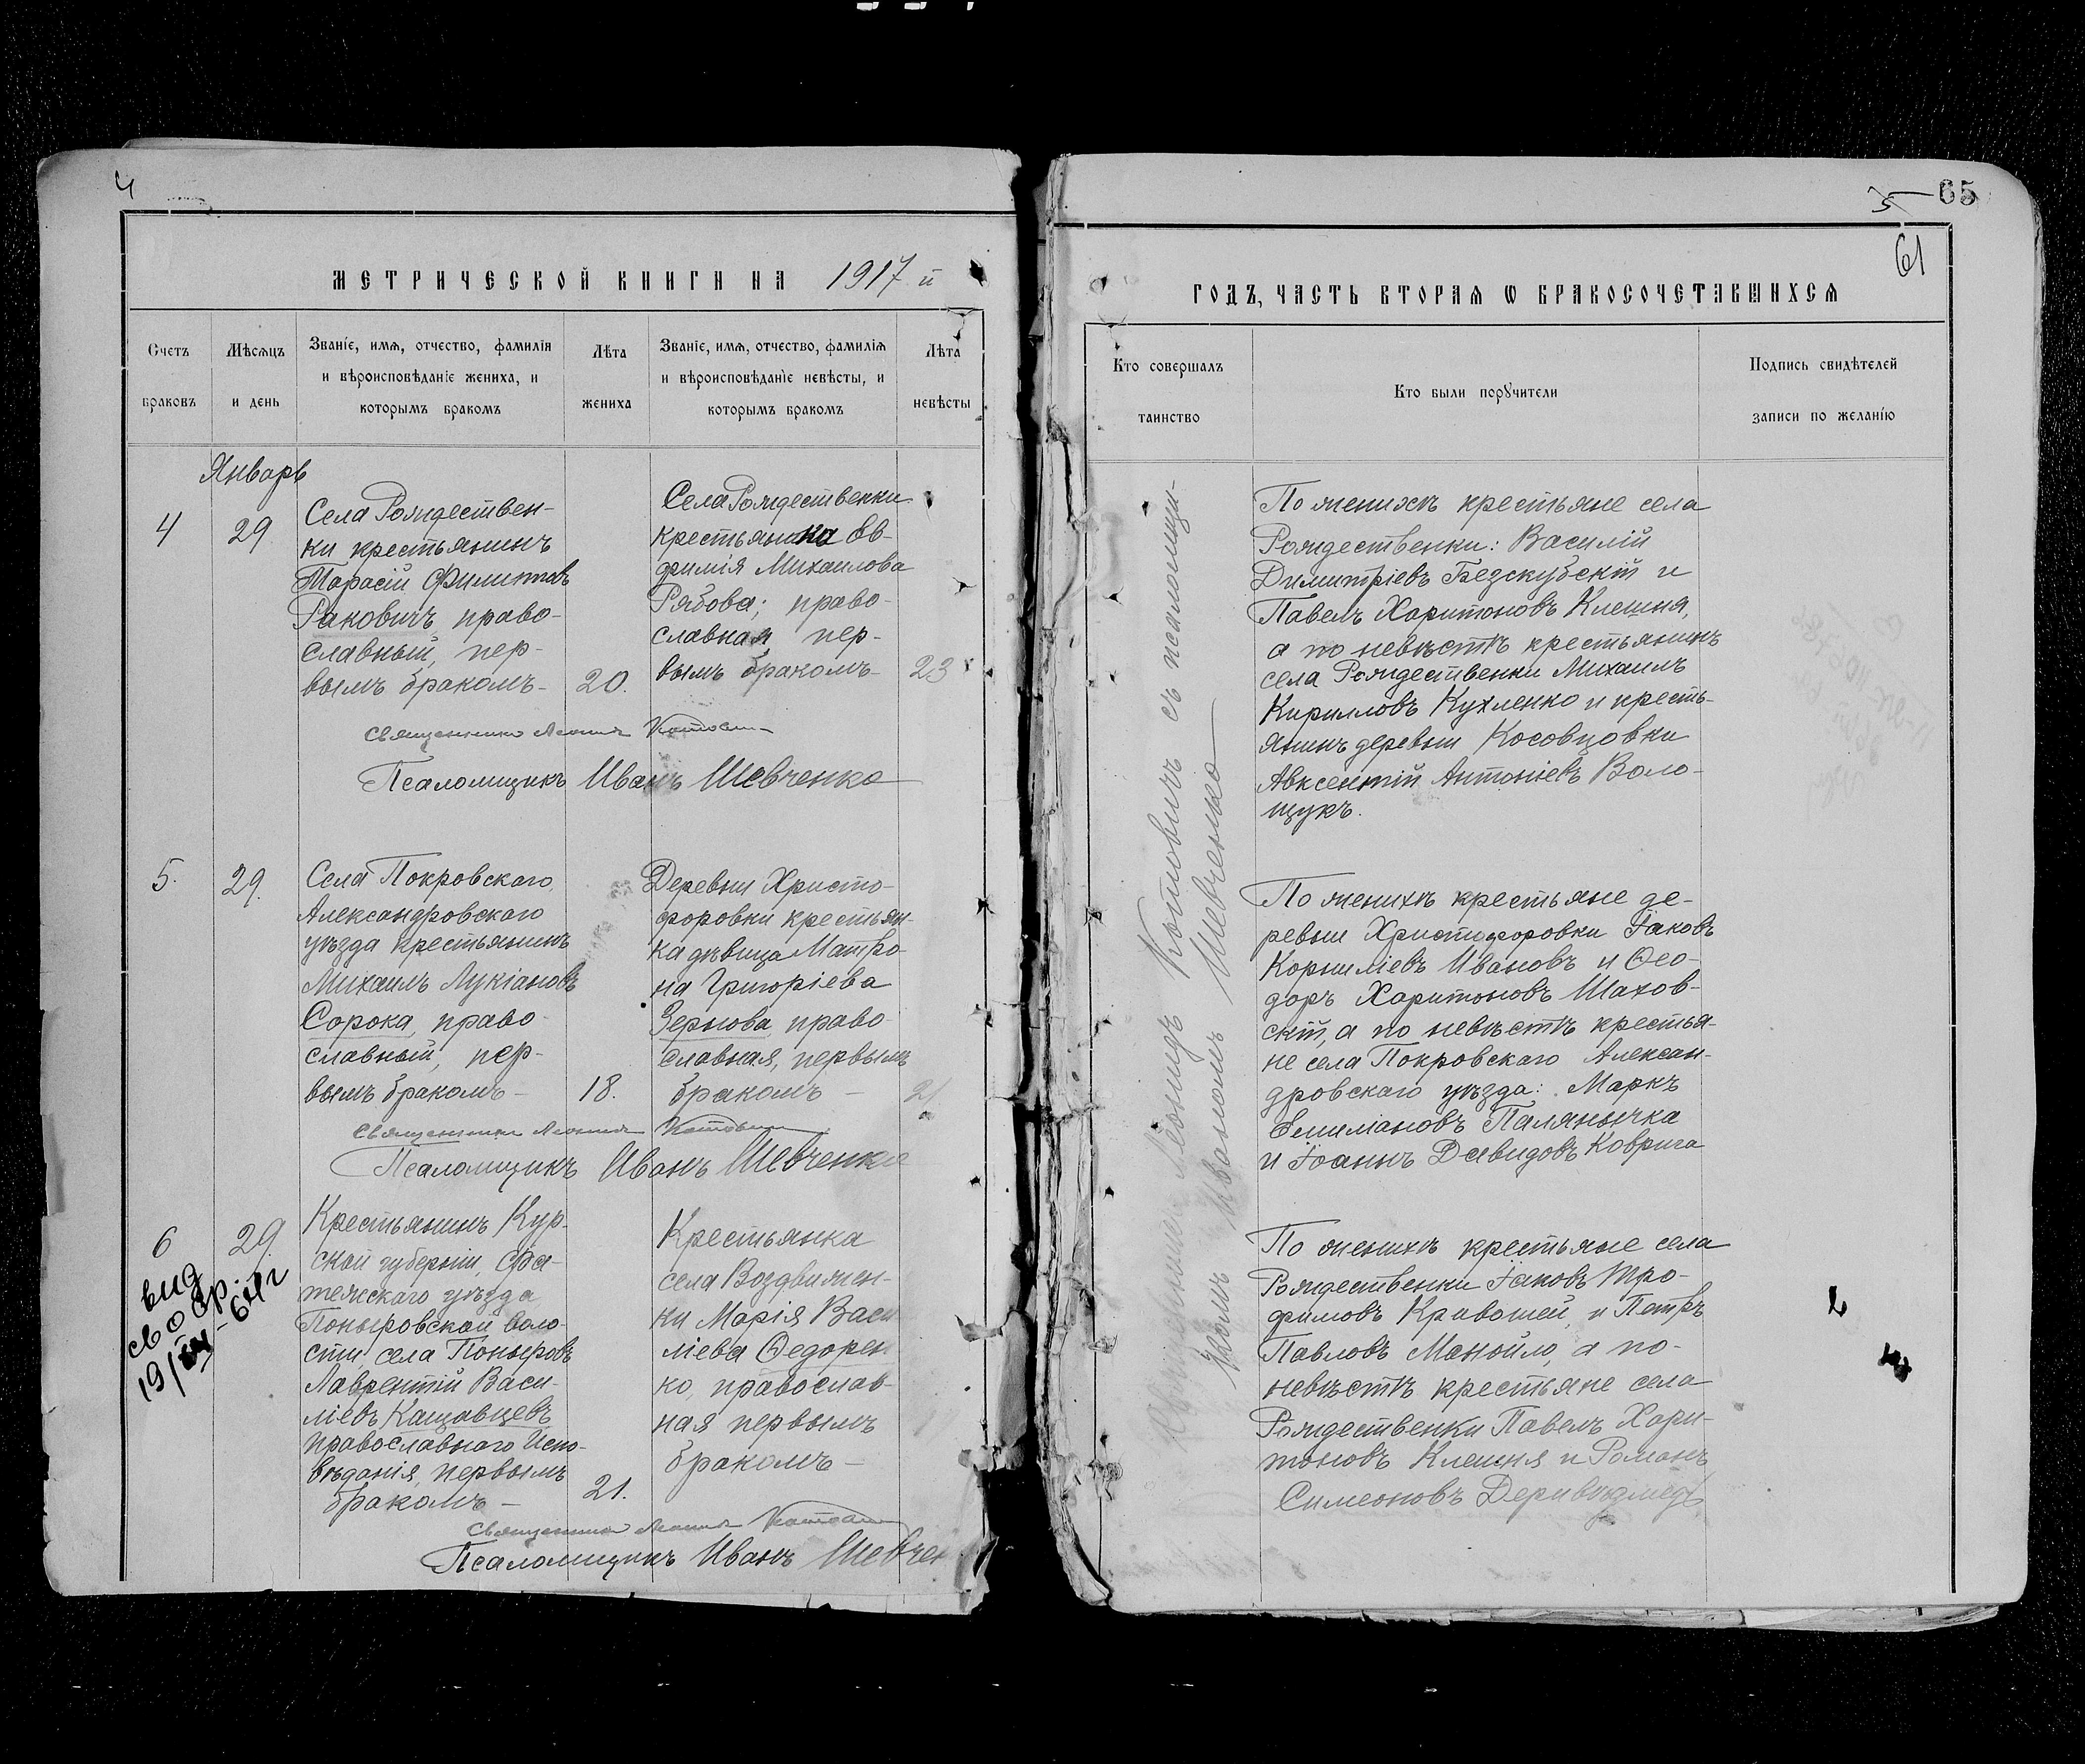 4
МЕТРИЧЕСКОЙ КНИГИ НА 1917 й
Счетъ браковъ
Мѣсяцъ и день
Званіе, имя, отчество, фамилія
и вѣроисповѣданіе жениха, и
которымъ бракомъ
Лѣта жениха
Званіе, имя, отчество, фамилія
и вѣроисповѣданіе невѣсты, и
которымъ бракомъ
Лѣта невѣсты
Январь
4
29
Села Рождествен-
ки крестьянинъ
Тарасій Филиповъ
Раковичъ, право-
славный, пер-
вымъ бракомъ-
20.
Села Рождественки
крестьянка Ев-
фимія Михаилова
Рябова; право-
славная пер-
вымъ бракомъ-
23
Священникъ Леонидъ Котович
Псаломщикъ Иванъ Шевченко
5.
29.
Села Покровскаго,
Александровскаго
уѣзда крестьянинъ
Михаилъ Лукіановъ
Сорока, право-
славный, пер-
вымъ бракомъ-
18.
Деревни Христо-
форовки крестьян-
ка дѣвица Матро-
на Григоріева
Зернова, право-
славная, первымъ
бракомъ -
21
Священникъ Леонидъ Котович
Псаломщикъ Иванъ Шевченко
6
29.
вид
св о бр.
Крестьянинъ Кур-
ской губерніи, Фа-
тежскаго уѣзда
Поныровской воло-
сти, села Поныровъ
Лаврентій Васи-
ліевъ Кащавцевъ
православнаго испо-
вѣданія, первымъ
бракомъ -
21.
Крестьянка
села Воздвижен-
ки Марія Васи
ліева Ѳедорен
ко, православ-
ная первымъ
бракомъ-
Священникъ Леонидъ Котович
Псаломщикъ Иванъ Шевчен
5 65
61
ГОДЪ, ЧАСТЬ ВТОРАЯ Ѡ БРАКОСОЧЕТАВШИХСЯ
Кто совершалъ таинство
Кто были поручители
Подпись свидѣтелей
записи по желанію
Священникъ Леонидъ Котовичъ съ псаломщи-
комъ Иваномъ Шевченко
По женихѣ крестьяне села
Рождественки: Василій
Димитріевъ Безскубскій и
Павелъ Харитоновъ Клешня,
а по невѣстѣ крестьянинъ
села Рождественки Михаилъ
Кирилловъ Кухленко и кресть-
янинъ деревни Косовцовки
Авксентій Антоніевъ Воло-
щукъ.
По женихѣ крестьяне де-
ревни Христофоровки Іаковъ
Корниліевъ Ивановъ и Ѳео-
доръ Харитоновъ Шахов-
скій, а по невѣстѣ крестья-
не села Покровскаго Алексан-
дровскаго уѣзда: Маркъ
Емиліановъ Паляничка
и Іоаннъ Давидовъ Коврига
По женихѣ крестьяне села
Рождественки Іаковъ Тро-
фимовъ Кривошей, и Петръ
Павловъ Манойло, а по-
невѣстѣ крестьяне села
Рождественки Павелъ Хари-
тоновъ Клешня и Романъ
Симеоновъ Деривѣдмедь